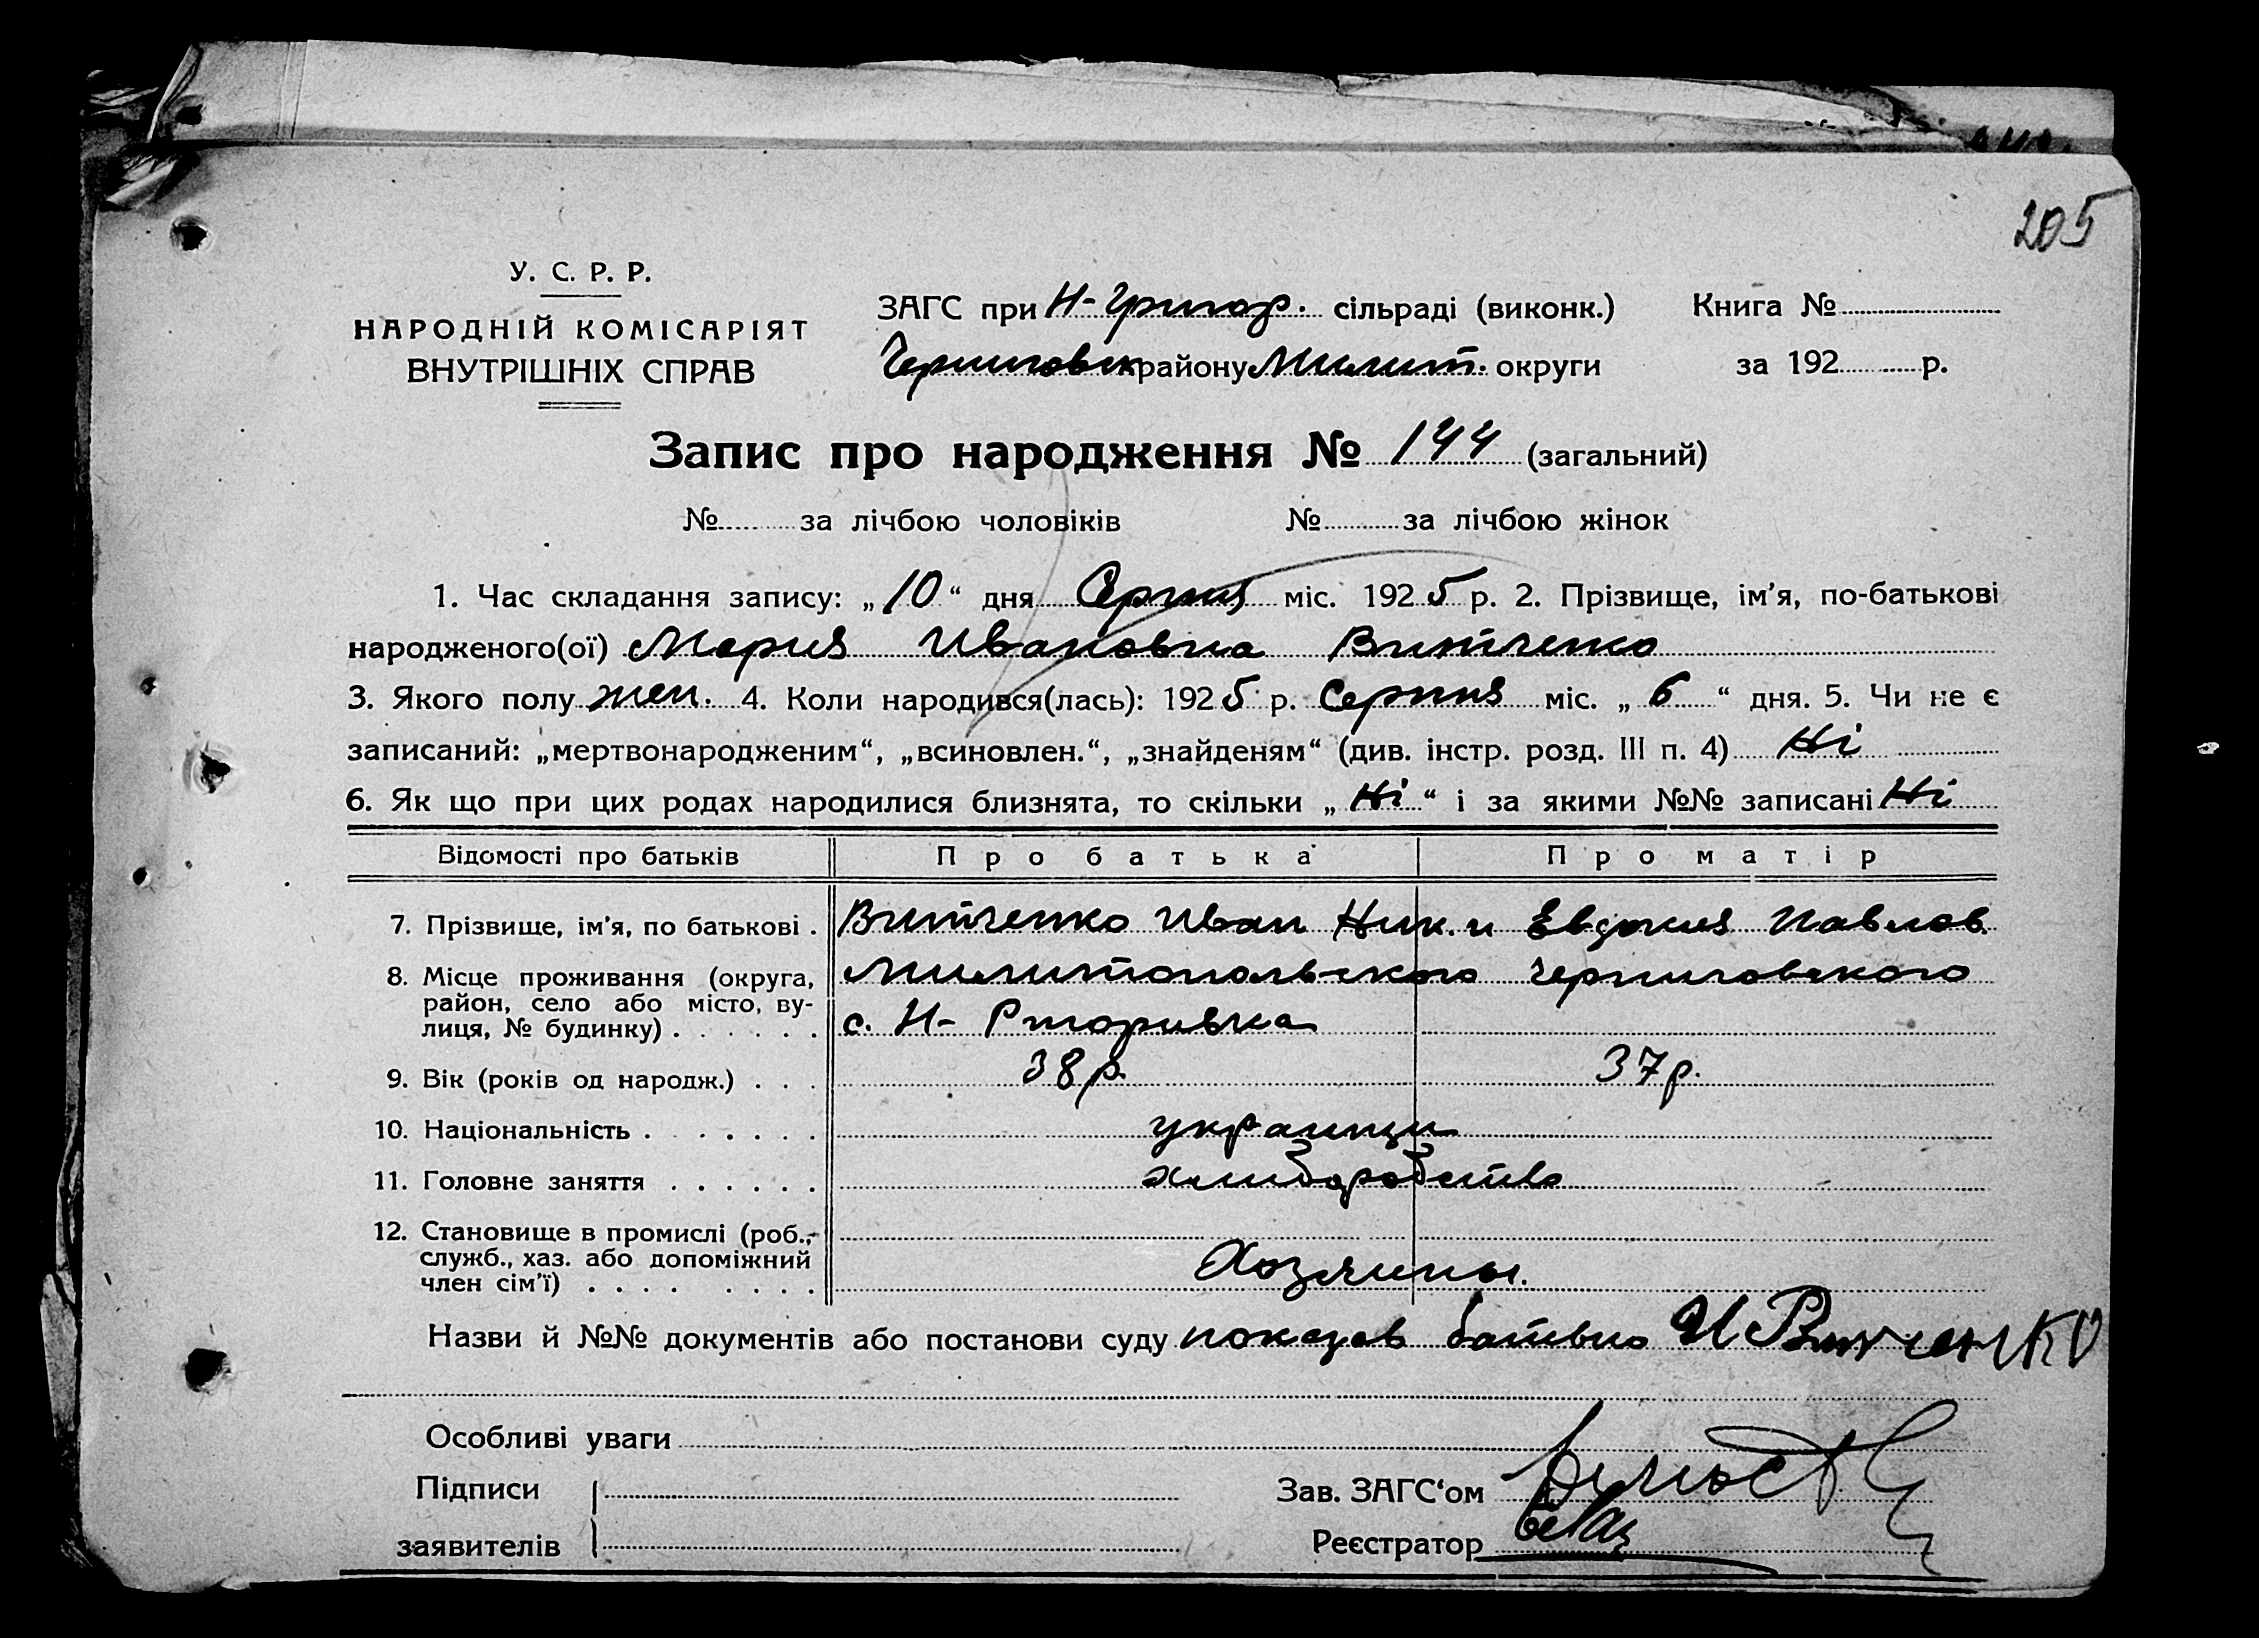 205
У. С. Р. Р.
НАРОДНІЙ КОМІСАРІЯТ
ВНУТРІШНІХ СПРАВ
ЗАГС при Н-Григор. сільраді (виконк.)
Черниговск району Милит. округи
Книга №
за 192 р.
Запис про народження № 144 (загальний)
№ за лічбою чоловіків № за лічбою жінок
1. Час складання запису: „10“ дня Серпня міс. 1925 р. 2. Прізвище, ім’я, по-батькові
народженого(ої) Мария Ивановна Витченко
3. Якого полу жен. 4. Коли народився(лась): 1925 р. Серпня міс. „6“ дня. 5. Чи не є
записаний: „мертвонародженим“, „всиновлен.“, „знайденям“ (див. інстр. розд. III п. 4) Ні
6. Як що при цих родах народилися близнята, то скільки „Ні“ і за якими №№ записані Ні
Відомості про батьків Про батька Про матір
7. Прізвище, ім’я, по батькові . Витченко Иван Ник. и Евдокия Павлов.
8. Місце проживання (округа, Милитопольского Черниговского
район, село або місто, ву-
лиця, № будинку) . . . . . . с. Н-
9. Вік (років од народж.) . . . 38 р. 37 р.
10. Національність . . . . . . украинци
11. Головне заняття . . . . . . хлиборобство
12. Становище в промислі (роб.,
служб., хаз. або допоміжний
член сім’ї) . . . . . . . . Хозяины.
Назви й №№ документів або постанови суду показав батько И Витченко
Особливі уваги
Підписи
заявителів
Зав. ЗАГС‘ом
Реєстратор